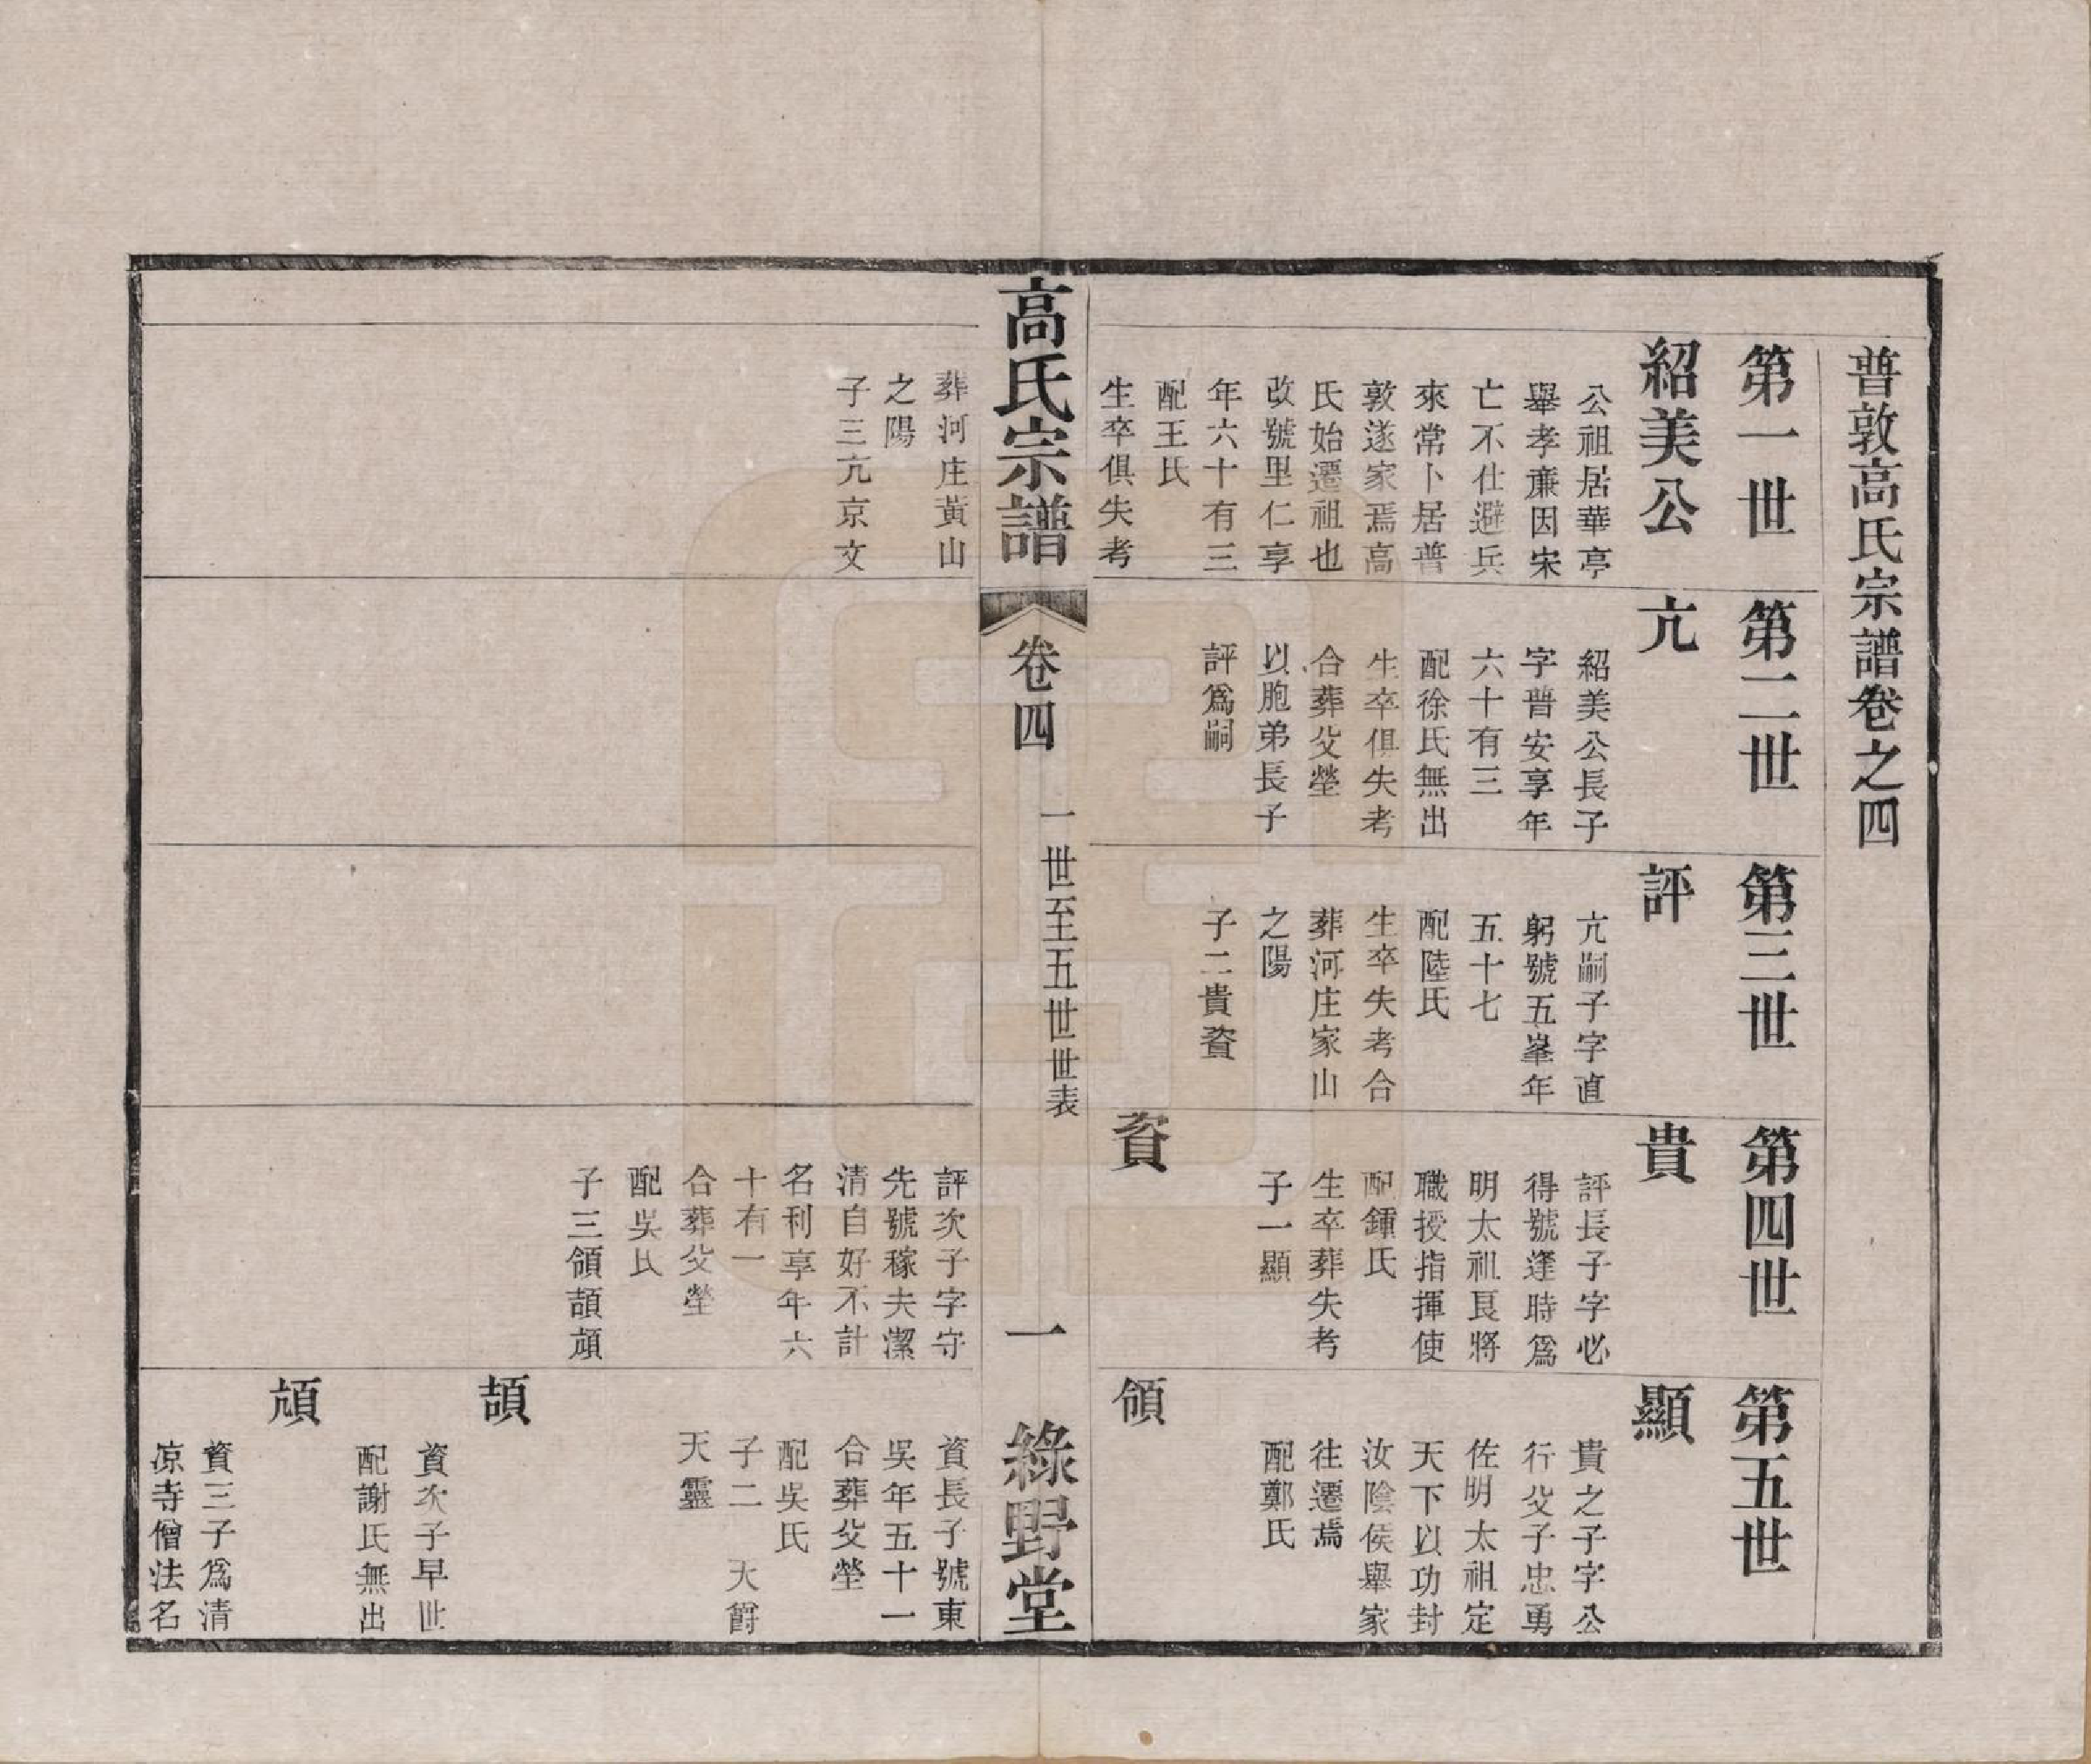 普敦高氏宗譜卷之四
第一世
紹美公
公祖居華亭
舉孝亷因宋
亡不仕避兵
來常卜居普
敦遂家焉高
氏始遷祖也
改號里仁享
年六十有三
配王氏
生卒俱失考
葬河庄黃山
之陽
子三亢京文
第二世
亢
紹美公長子
字普安享年
六十有三
配徐氏無出
生卒俱失考
合葬父塋
以胞弟長子
評爲嗣
第三世
評
亢嗣子字直
躬號五峯年
五十七
配陸氏
生卒失考合
葬河庄家山
之陽
子二貴資
第四世
貴
評長子字必
得號逢時爲
明太祖良將
職授指揮使
配鍾氏
生卒葬失考
子一顯
資
評次子字守
先號稼夫潔
清自好不計
名利享年六
十有一
合葬父塋
配吳氏
子三領頡頏
第五世
顯
貴之子字公
行父子忠勇
佐明太祖定
天下以功封
汝陰侯舉家
往遷焉
配鄭氏
領
資長子號東
吳年五十一
合葬父塋
配吳氏
子二 天爵
天靈
頡
資次子早世
配謝氏無出
頏
資三子爲清
凉寺僧法名
高氏宗譜
卷四
一世至五世世表
一
綠野堂